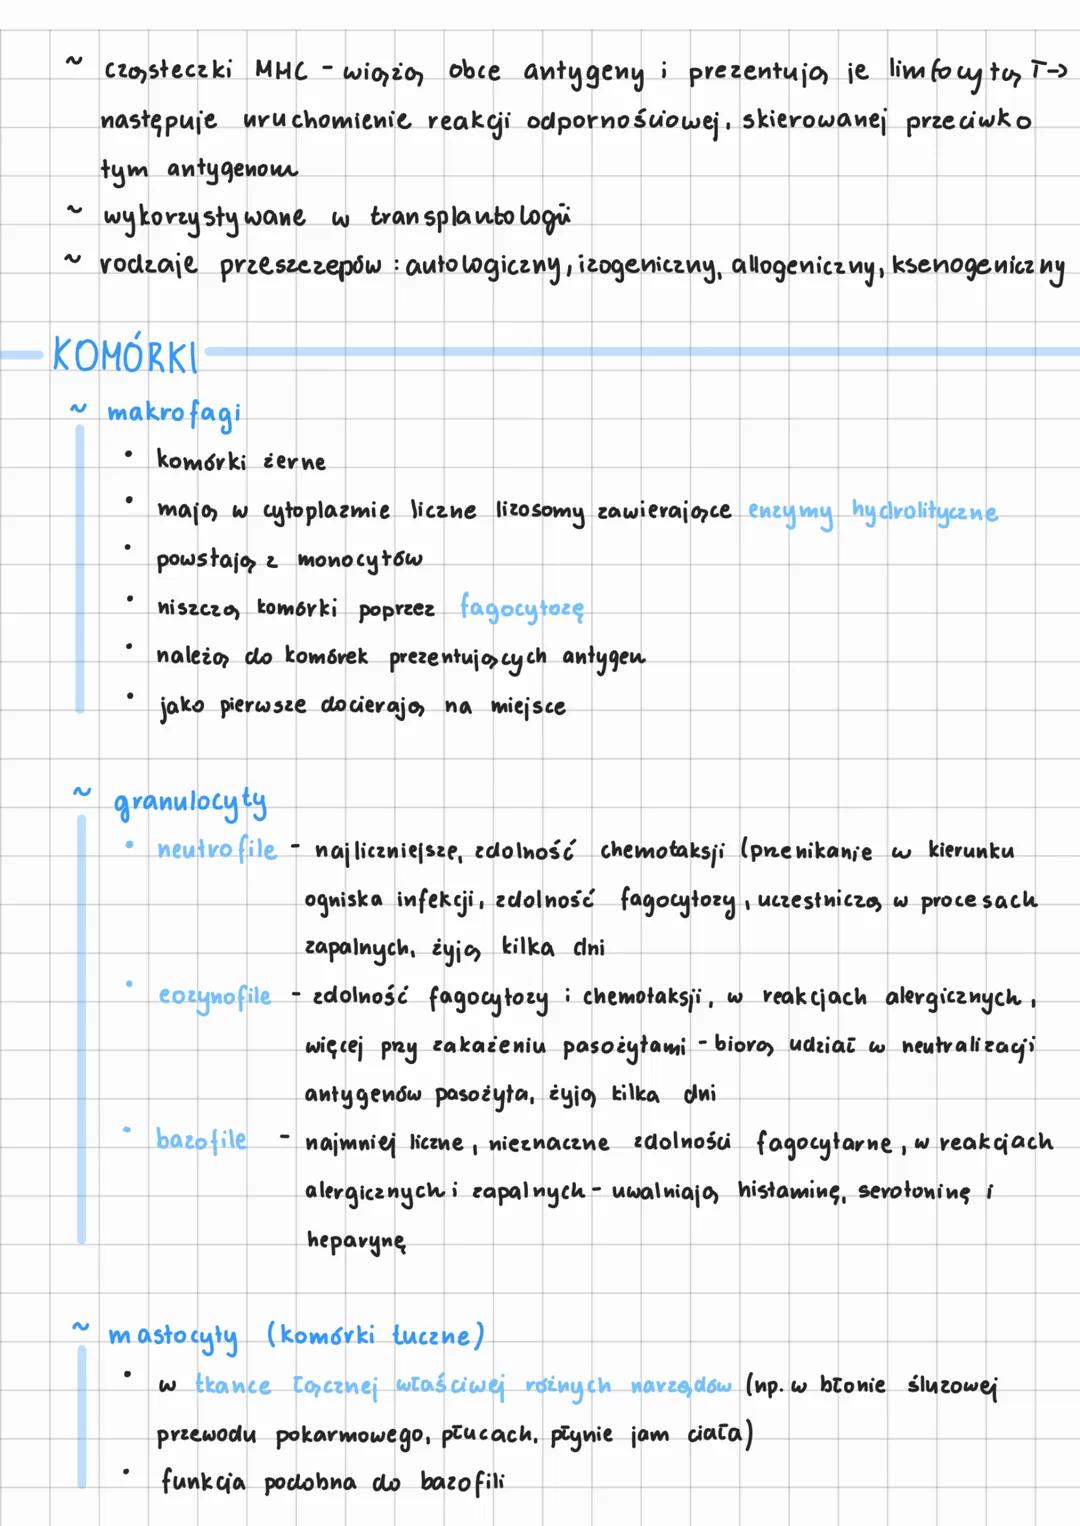 ~ cząsteczki MHC - wiążą obce antygeny i prezentują je limfocytą T→
następuje uruchomienie reakcji odpornościowej, skierowanej przeciwko
tym antygenom
~ wykorzystywane w transplantologii
~ rodzaje przeszczepów : autologiczny, izogeniczny, allogeniczny, ksenogeniczny
KOMÓRKI
~ makrofagi
• komórki żerne
• mają w cytoplazmie liczne lizosomy zawierające enzymy hydrolityczne
• powstają z monocytów
• niszczą komórki poprzez fagocytozę
• należą do komórek prezentujących antygen
• jako pierwsze docierają na miejsce
~ granulocyty
• neutrofile - najliczniejsze, zdolność chemotaksji (przenikanie w kierunku
ogniska infekcji, zdolność fagocytozy, uczestniczą w procesach
zapalnych, żyją kilka dni
• eozynofile - zdolność fagocytozy i chemotaksji, w reakcjach alergicznych,
więcej przy zakażeniu pasożytami - biorą udział w neutralizacji
antygenów pasożyta, żyją kilka dni
• bazofile - najmniej liczne, nieznaczne zdolności fagocytarne, w reakcjach
alergicznych i zapalnych - uwalniają histaminę, serotoninę i
heparynę
~ mastocyty (komórki tuczne)
• w tkance łącznej właściwej różnych narządów (np. w błonie śluzowej
przewodu pokarmowego, płucach, płynie jam ciała)
• funkcja podobna do bazofili